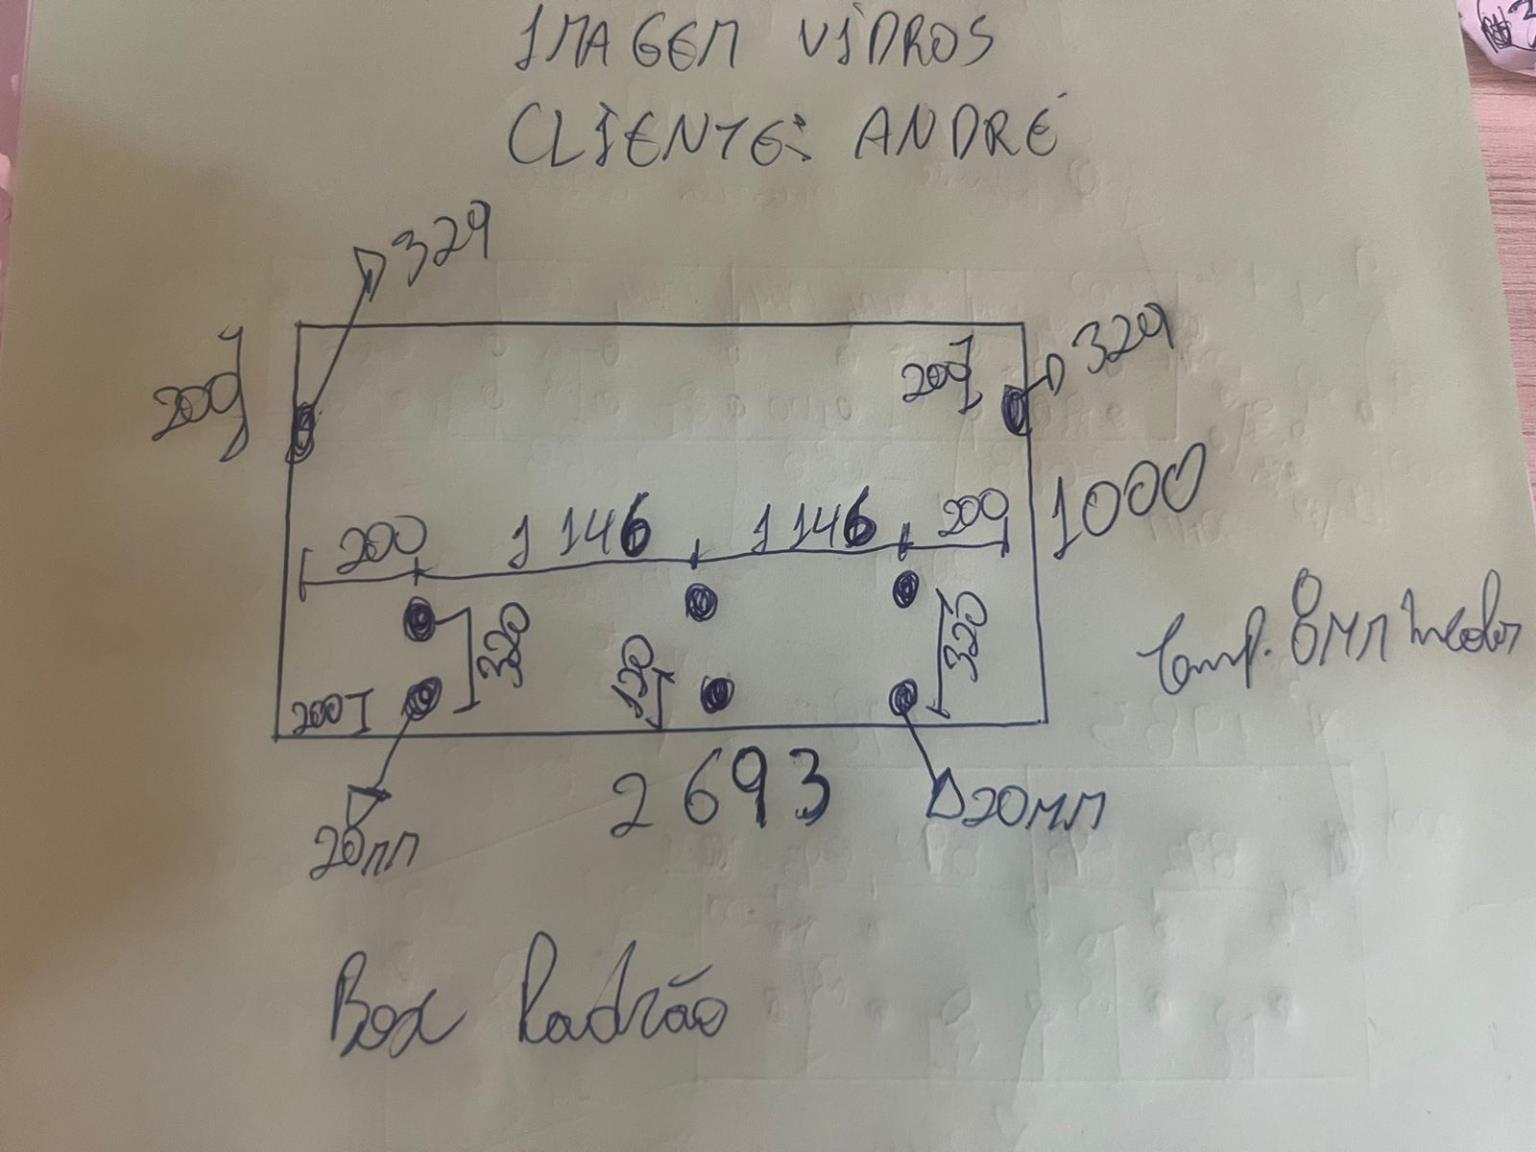 IMAGEM VIDROS
CLIENTE: ANDRÉ
329
200
200
329
200
1146
1146
200
1000
320
120
320
200
Temp. 8MM Incolor
2693
20MM
20MM
Box Padrão